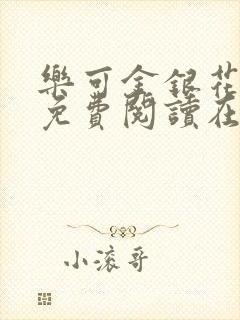 樂可金銀花
免費閱讀在
小滚哥